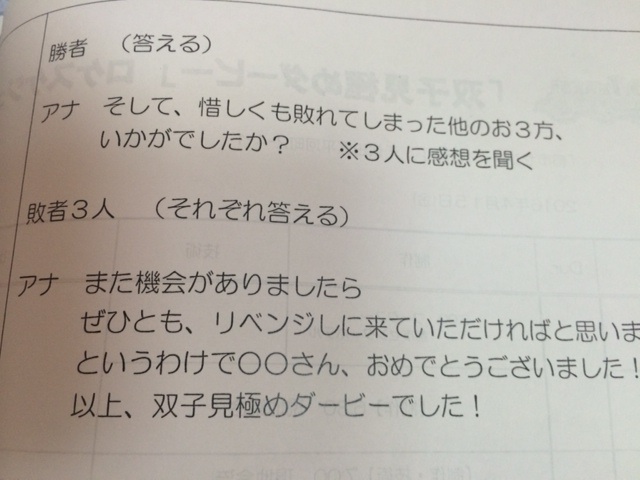 勝者　（答える）
アナ　そして、惜しくも敗れてしまった他のお３方、
いかがでしたか？　　※３人に感想を聞く
敗者３人　（それぞれ答える）
アナ　また機会がありましたら
ぜひとも、リベンジしに来ていただければと思いま
というわけで〇〇さん、おめでとうございました！
以上、双子見極めダービーでした！